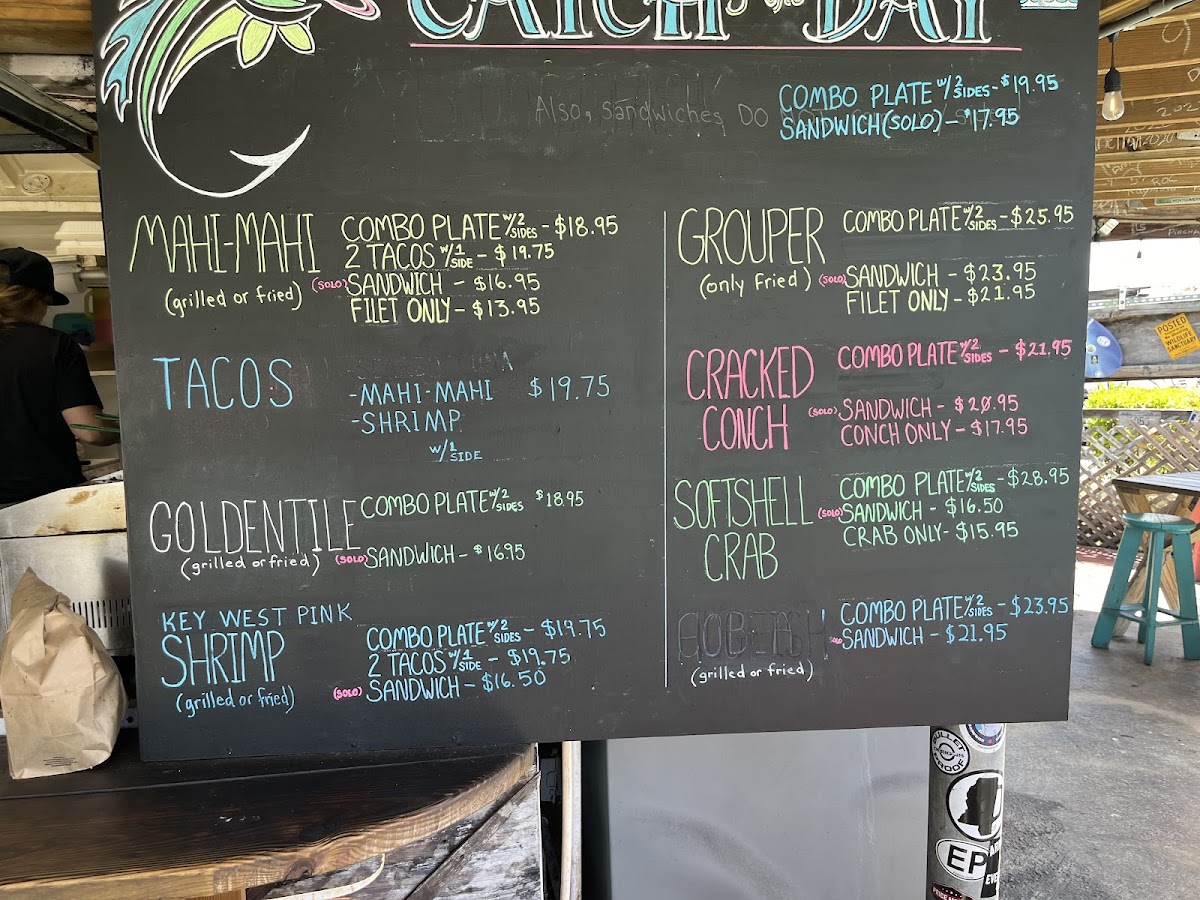 CATCH OF THE DAY
Also, Sandwiches DO
COMBO PLATE W/2 SIDES - $19.95
SANDWICH (SOLO) - $17.95
MAHI-MAHI
(grilled or fried)
COMBO PLATE W/2 SIDES - $18.95
2 TACOS W/1 SIDE - $19.75
(SOLO) SANDWICH - $16.95
FILET ONLY - $13.95
TACOS
-MAHI-MAHI $19.75
-SHRIMP
W/1 SIDE
GOLDENTILE
(grilled or fried)
COMBO PLATE W/2 SIDES $18.95
(SOLO) SANDWICH - $16.95
KEY WEST PINK
SHRIMP
(grilled or fried)
COMBO PLATE W/2 SIDES - $19.75
2 TACOS W/1 SIDE - $19.75
(SOLO) SANDWICH - $16.50
GROUPER
(only fried)
COMBO PLATE W/2 SIDES - $25.95
(SOLO) SANDWICH - $23.95
FILET ONLY - $21.95
CRACKED
CONCH
COMBO PLATE W/2 SIDES - $21.95
(SOLO) SANDWICH - $20.95
CONCH ONLY - $17.95
SOFTSHELL
CRAB
COMBO PLATE W/2 SIDES - $28.95
(SOLO) SANDWICH - $16.50
CRAB ONLY - $15.95
(grilled or fried)
COMBO PLATE W/2 SIDES - $23.95
SOLO SANDWICH - $21.95
POSTED
WILDLIFE
SANCTUARY
BULLET
PROOF
EP